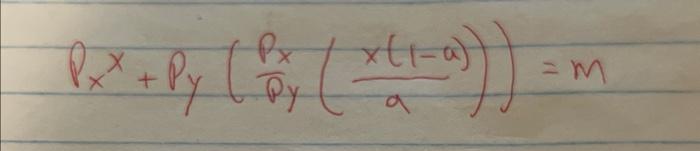 Pₓx + Py (Px/Py (x(1-a)/a)) = m